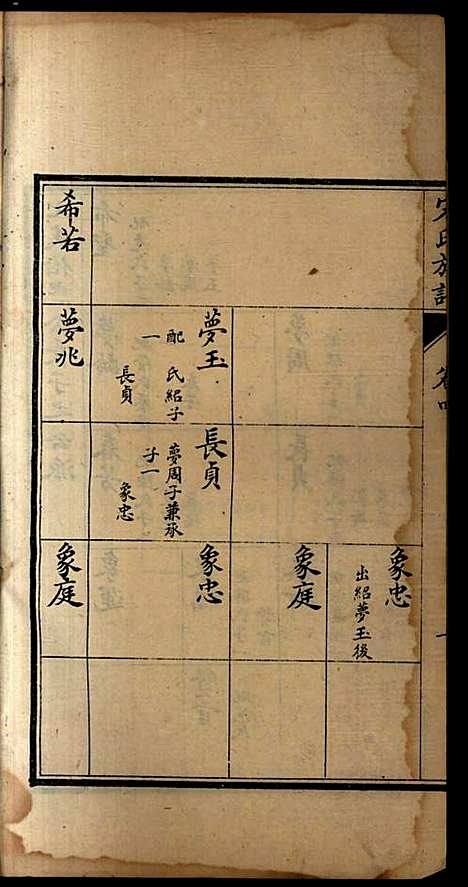 宋氏族譜
卷四
象忠
出紹夢玉後
象庭
夢玉
配 氏紹子
一
長貞
長貞
夢周子兼承
子一
象忠
象忠
希若
夢兆
象庭